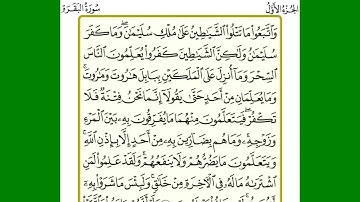 الجزء الأول
سورة البقرة
وَاتَّبَعُوا مَا تَتْلُوا الشَّيَاطِينُ عَلَىٰ مُلْكِ سُلَيْمَانَ وَمَا كَفَرَ
سُلَيْمَانُ وَلَٰكِنَّ الشَّيَاطِينَ كَفَرُوا يُعَلِّمُونَ النَّاسَ
السِّحْرَ وَمَا أُنزِلَ عَلَى الْمَلَكَيْنِ بِبَابِلَ هَارُوتَ وَمَارُوتَ
وَمَا يُعَلِّمَانِ مِنْ أَحَدٍ حَتَّىٰ يَقُولَا إِنَّمَا نَحْنُ فِتْنَةٌ فَلَا
تَكْفُرْ فَيَتَعَلَّمُونَ مِنْهُمَا مَا يُفَرِّقُونَ بِهِ بَيْنَ الْمَرْءِ
وَزَوْجِهِ وَمَا هُم بِضَارِّينَ بِهِ مِنْ أَحَدٍ إِلَّا بِإِذْنِ اللَّهِ
وَيَتَعَلَّمُونَ مَا يَضُرُّهُمْ وَلَا يَنفَعُهُمْ وَلَقَدْ عَلِمُوا لَمَنِ
اشْتَرَاهُ مَا لَهُ فِي الْآخِرَةِ مِنْ خَلَاقٍ وَلَبِئْسَ مَا شَرَوْا بِهِ